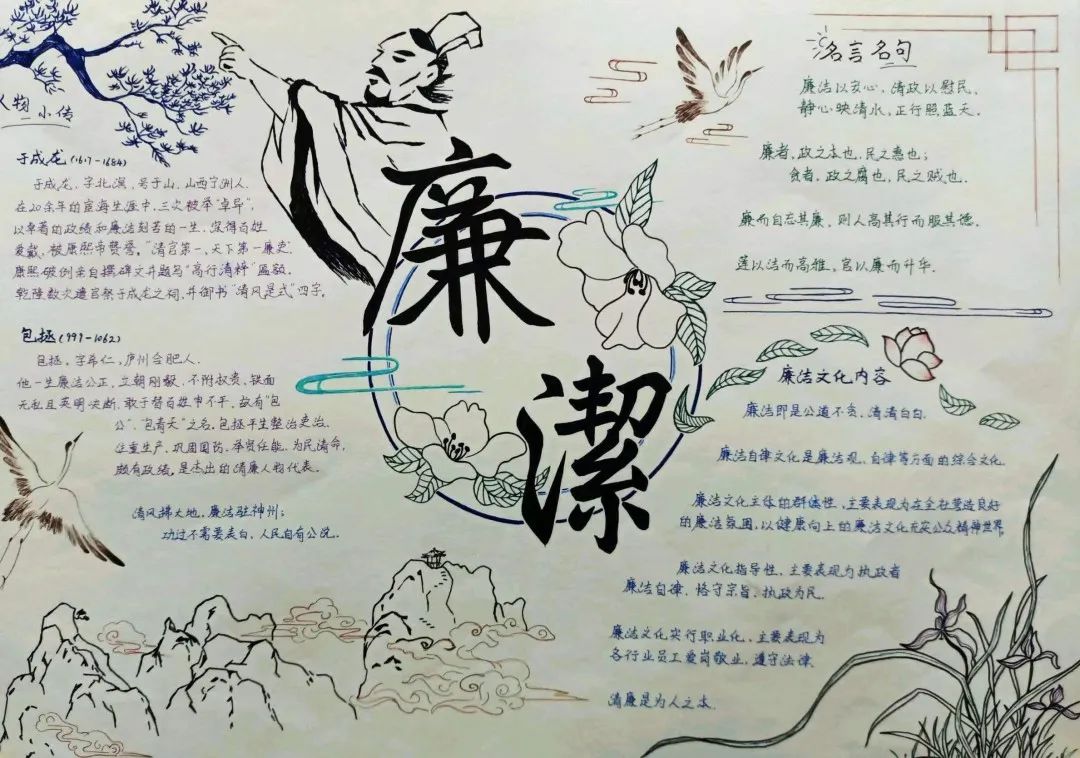 人物
小传
于成龙(1617-1684)
于成龙,字北溟,号于山,山西宁洲人.
在20余年的宦海生涯中,三次被举“卓异”,
以卓著的政绩和廉洁刻苦的一生,深得百姓
爱戴,被康熙帝赞誉:“清官第一,天下第一廉吏”.
康熙破例亲自撰碑文并题写“高行清粹”匾额.
乾隆数次遣官祭于成龙之祠,并御书“清风是式”四字.
包拯(999-1062)
包拯,字希仁,庐州合肥人.
他一生廉洁公正、立朝刚毅、不附权贵、铁面
无私且英明决断、敢于替百姓申不平,故有“包
公”、“包青天”之名,包拯平生整治吏治.
注重生产、巩固国防、举贤任能、为民请命,
颇有政绩.是杰出的清廉人物代表.
清风拂大地,廉洁驻神州;
功过不需要表白,人民自有公说.
廉
潔
名言名句
廉洁以安心,清政以慰民,
静心映清水,正行照蓝天.
廉者,政之本也,民之惠也;
贪者,政之腐也,民之贼也.
廉而自忘其廉,则人高其行而服其德.
莲以洁而高雅,官以廉而升华.
廉洁文化内容
廉洁即是公道不贪,清清白白.
廉洁自律文化是廉洁观、自律等方面的综合文化.
廉洁文化主体的群体性,主要表现为在全社营造良好
的廉洁氛围,以健康向上的廉洁文化充实公众精神世界.
廉洁文化指导性,主要表现为执政者
廉洁自律、恪守宗旨、执政为民.
廉洁文化实行职业化,主要表现为
各行业员工爱岗敬业,遵守法律.
清廉是为人之本.